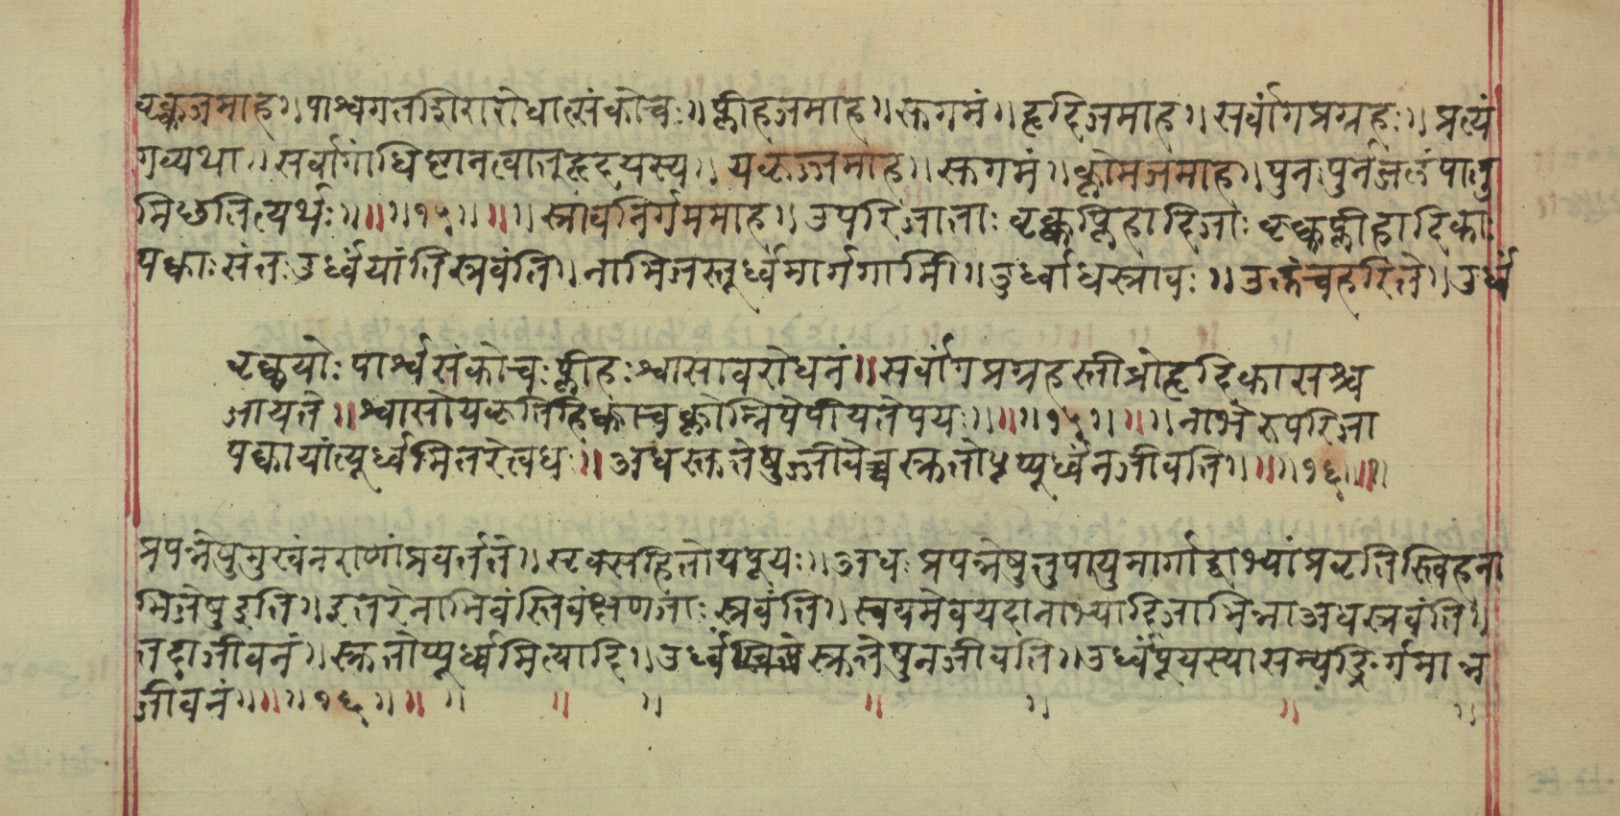 वृक्कजमाह ॥ पाश्वगतशिरारोधात्संकोचः ॥ प्लीहजमाह ॥ स्क्तगमं ॥ हृदिजमाह ॥ सर्वांगप्रग्रहः ॥ प्रत्यं
गव्यथा ॥ सर्वांगाधिष्टानत्वात्तुहृदयस्य ॥ यकृज्जमाह ॥ स्क्तगमं ॥ क्लोमजमाह ॥ पुनःपुनर्जलंपातु
मिछतित्यर्थः ॥ ॥ ॥ १५ ॥ ॥ ॥ स्त्रावनिर्गममाह ॥ उपरिजाताः वृक्कप्लिहादिजाः वृक्कप्लीहादिका
पक्काःसंतःउर्ध्वंयांतिस्त्रवंति ॥ नाभिजस्तूर्ध्वमार्गगामि ॥ उर्ध्वाधस्त्रावः ॥ उक्तंचहरिते ॥ उर्ध्वं
वृक्कयोः पार्श्वसंकोचः प्लीहःश्वासावरोधनं ॥ सर्वांगप्रग्रहस्तीव्रोहृदिकासश्च
जायते ॥ श्वासोयकृतिहिक्काचक्लोम्निपेपीयतेपयः ॥ ॥ ॥ १५ ॥ ॥ ॥ नाभेरुपरिजा
पक्कायांत्यूर्ध्वमितरेत्वधः ॥ अधस्क्ततेषुजीवेच्चस्क्ततोषूप्यूर्ध्वंनजीवति ॥ ॥ ॥ १६ ॥ ॥
प्रपन्नेषुमुखंनराणांप्रवर्तते ॥ सृक्सहितोयपूयः ॥ अधः प्रपन्नेषुतुपायुमार्गाद्द्वाभ्यांप्रवृतिस्त्विहना
भिजेषुइति ॥ इतरेनाभिवस्तिवंक्षणजाः स्त्रवंति ॥ स्वयमेवयदानाभ्यादिजाभिन्नाअधस्त्रवंति ॥
तदाजीवनं ॥ स्क्ततोप्यूर्ध्वमित्यादि ॥ उर्ध्वं स्क्ततेपुनजीवति ॥ उर्ध्वंपूयस्यासम्यङ्निर्गमान्न
जीवनं ॥ ॥ ॥ १६ ॥ ॥ ॥ ॥ ॥ ॥ ॥ ॥ ॥